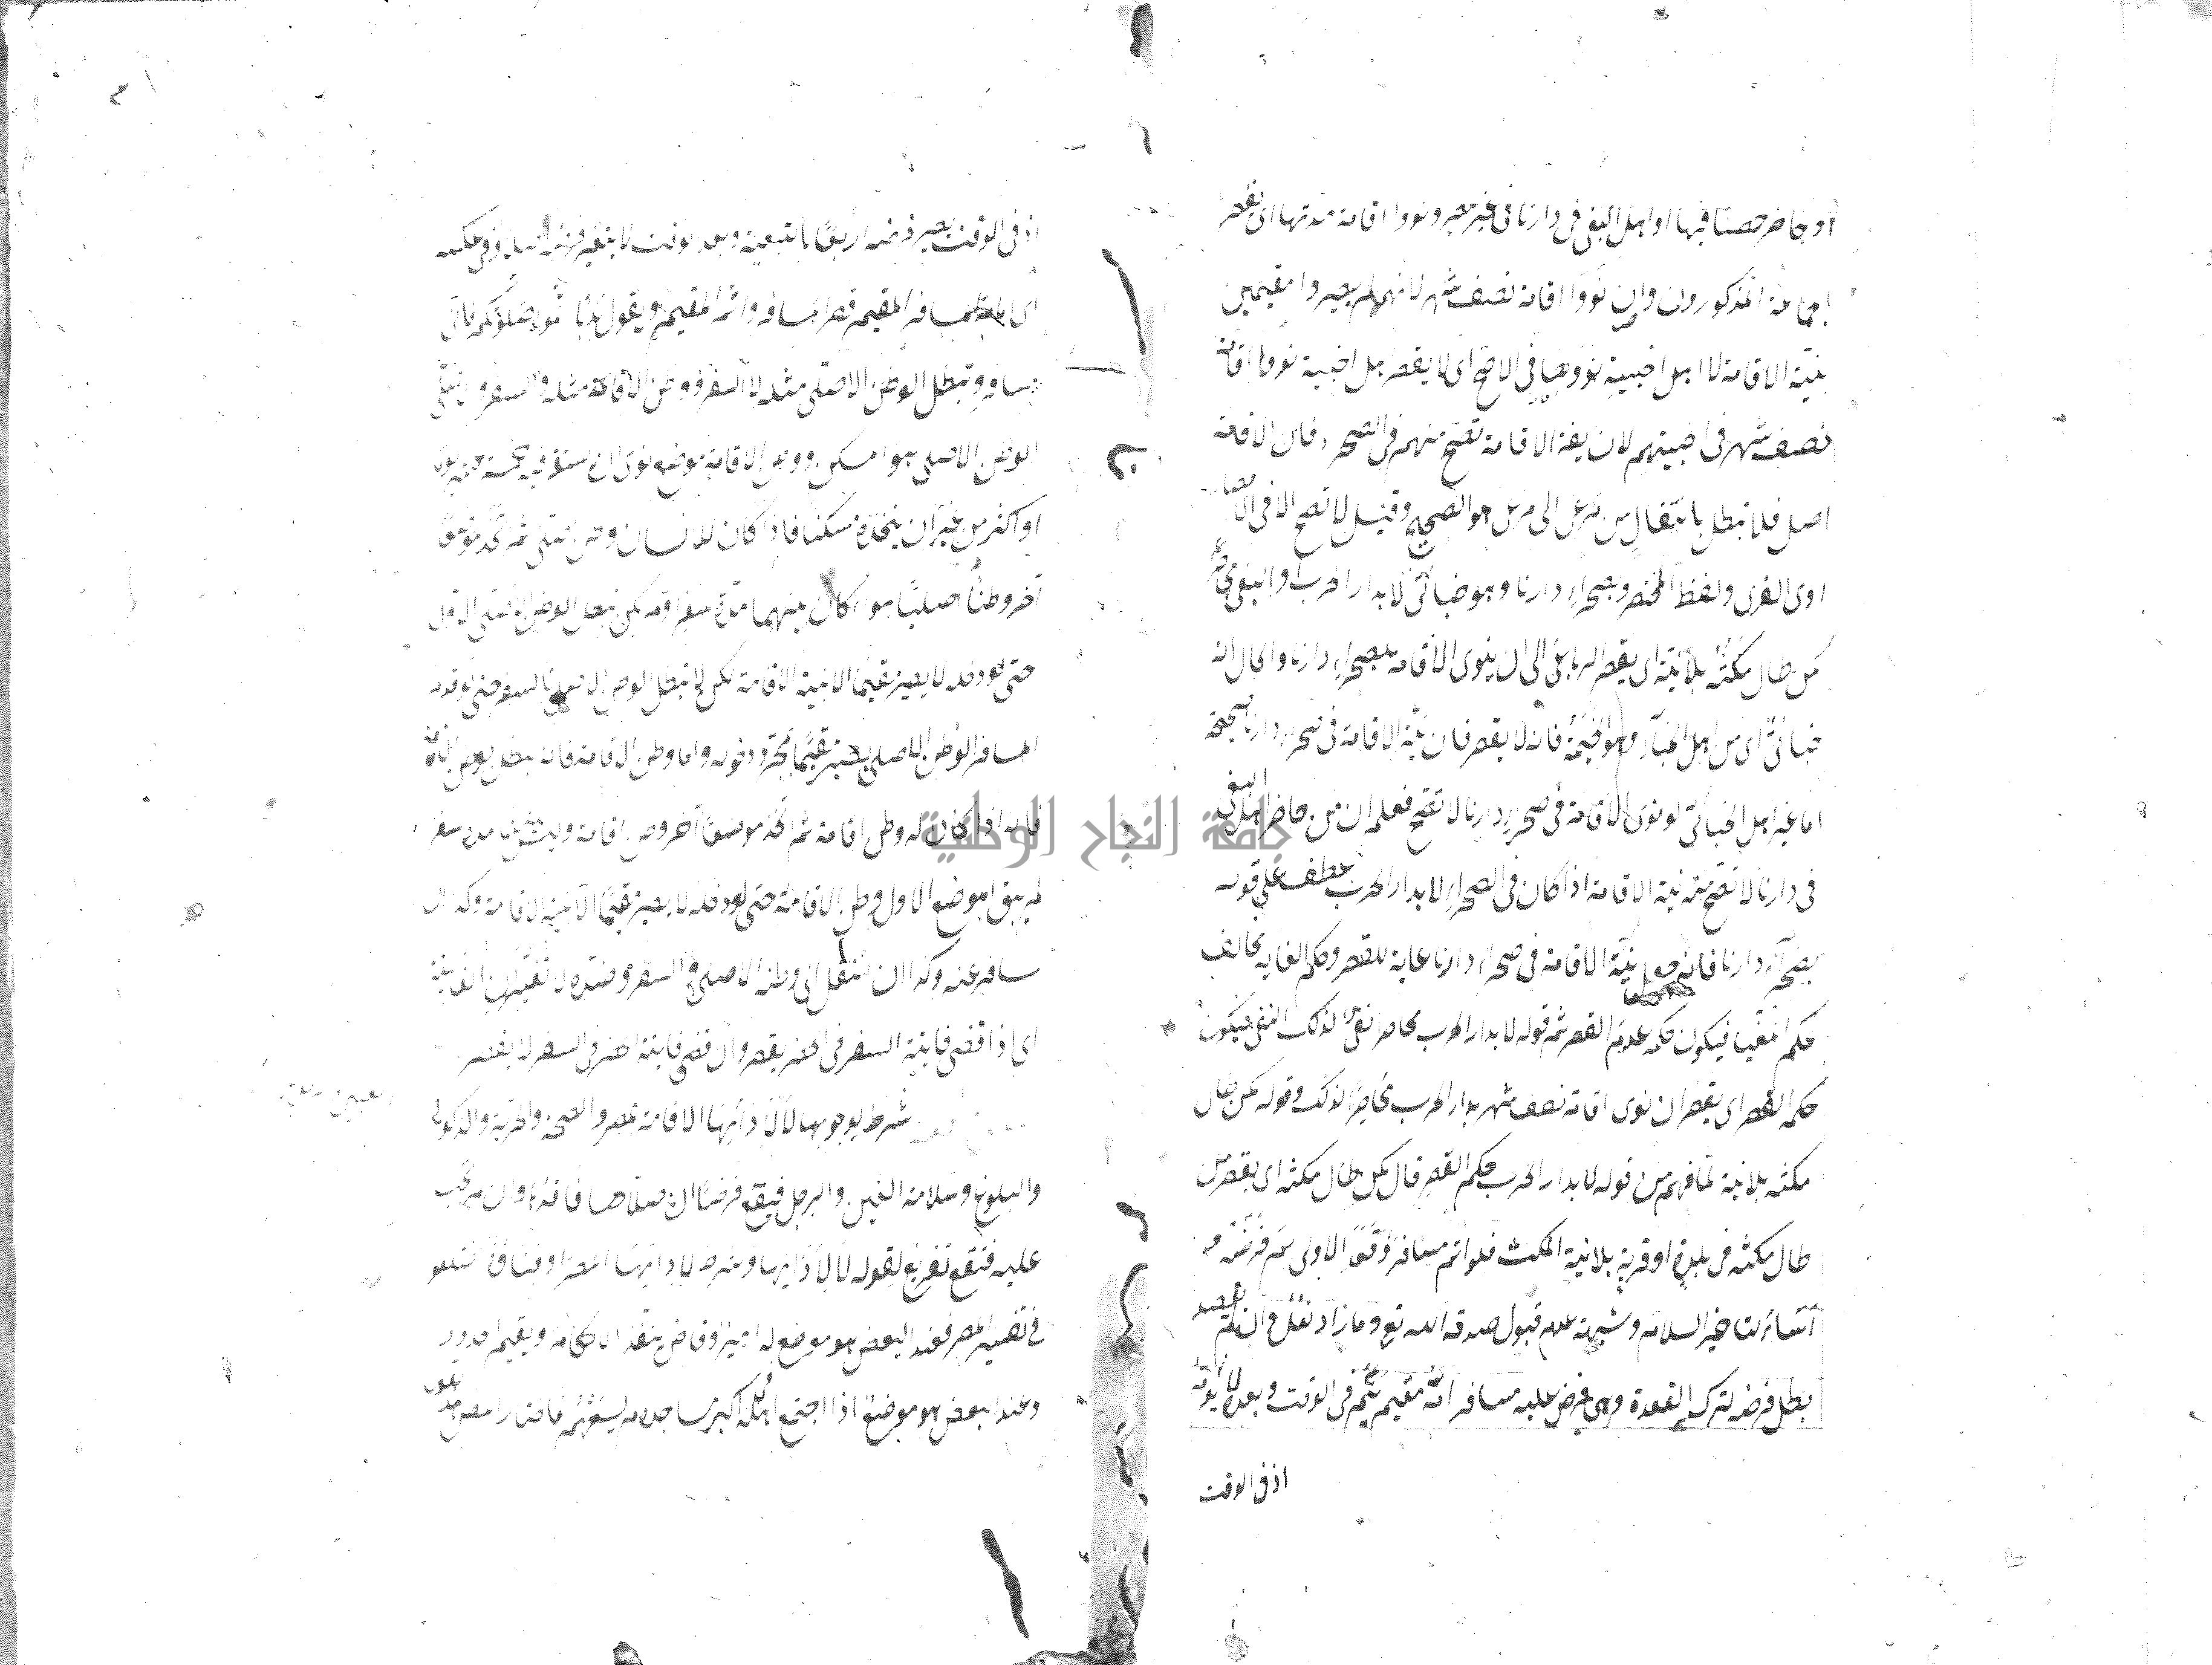 او حاصر حصنا فيها او اهل البغى فى دارنا فى غير مصر ونووا اقامة مدتها اى يقصر
الجماعة المذكورون وان نووا اقامة نصف شهر لانهم لم يصيروا مقيمين
بنية الاقامة لا اهل اخبية نووها فى الاصح اى لا يقصر اهل اخبية نووا اقامة
نصف شهر فى اخبيتهم لان نية الاقامة تصح منهم فى الصحراء فان الاقامة
اصل فلا تبطل بانتقال من مرعى الى مرعى هو الصحيح وقيل لا تصح الا فى الامصار
او فى القرى ولفظ المختصر وبصحراء دارنا وهو خبائى لا بدار الحرب او البغى محاصرا
كمن طال مكثه بلا نية اى يقصر الرباعى الى ان ينوى الاقامة بصحراء دارنا والحال انه
خبائى اى من اهل الخباء وهو الخيمة فانه لا يقصر فان نية الاقامة فى صحراء دارنا صحيحة
اما غير اهل الخبائى لو نوى الاقامة فى صحراء دارنا لا تصح فعلم ان من حاصر اهل البغى
فى دارنا لا تصح منه نية الاقامة اذا كان فى الصحراء لا بدار الحرب عطف على قوله
بصحراء دارنا فانه جعل نية الاقامة فى صحراء دارنا غاية للقصر وحكم الغاية يخالف
حكم المغيا فيكون حكمه عدم القصر ثم قوله لا بدار الحرب محاصرا نفى لذلك النفى فيكون
حكمه القصر اى يقصر ان نوى اقامة نصف شهر بدار الحرب محاصرا لذلك وقوله كمن طال
مكثه بلا نية لما فهم من قوله لا بدار الحرب حكم القصر قال كمن طال مكثه اى يقصر من
طال مكثه فى بلدة او قرية بلا نية المكث فلو اتم مسافر وقعد الاولى تم فرضه و
اساء لتاخير السلام وشبهة عدم قبول صدقة الله تع وما زاد نفل وان لم يقعد
بطل فرضه لترك القعدة وهى فرض عليه مسافر امه مقيم يتم فى الوقت وبعده لا يؤمه
اذ فى الوقت
اذ فى الوقت يصير فرضه اربعا بالتبعية وبعد الوقت لا يتغير فرضه اصلا وفى عكسه
اى امامة المسافر المقيم قصر المسافر واتم المقيم ويقول ندبا اتموا صلوتكم فانى
مسافر ويبطل الوطن الاصلى مثله لا السفر ووطن الاقامة مثله والسفر والاصلى
الوطن الاصلى هو المسكن ووطن الاقامة موضع نوى ان يستقر فيه خمسة عشر يوما
او اكثر من غير ان يتخذه مسكنا فاذا كان للانسان وطن اصلى ثم اتخذ موضعا
آخر وطنا اصليا سواء كان بينهما مدة سفر او لم يكن يبطل الوطن الاصلى الاول
حتى لو دخله لا يصير مقيما الا بنية الاقامة لكن لا يبطل الوطن الاصلى بالسفر حتى لو قدم
المسافر الوطن الاصلى يصير مقيما بمجرد دخوله واما وطن الاقامة فانه يبطل بوطن الاقامة
فانه اذا كان له وطن اقامة ثم اتخذ موضعا آخر وطن اقامة وليس بينهما مدة سفر
لم يبق الموضع الاول وطن الاقامة حتى لو دخله لا يصير مقيما الا بنية الاقامة وكذا ان
سافر عنه وكذا ان انتقل الى وطنه الاصلى والسفر وضده لا تغيران الفائتة
اى اذا قضى فائتة السفر فى الحضر يقصر وان قضى فائتة الحضر فى السفر لا يقصر
شرط لوجوبها لا لادائها الاقامة بمصر والصحة والحرية والذكورة
والبلوغ وسلامة العين والرجل فيقع فرضا ان صلاها فاقدها وان لم يجب
عليه فتقع تفريع لقوله لا لادائها وشرط لادائها المصر او فناؤه اختلفوا
فى تفسير المصر فعند البعض هو موضع له امير وقاض ينفذ الاحكام ويقيم الحدود
وعند البعض هو موضع اذا اجتمع اهله اكبر مساجده لم يسعهم فاختار المصنف